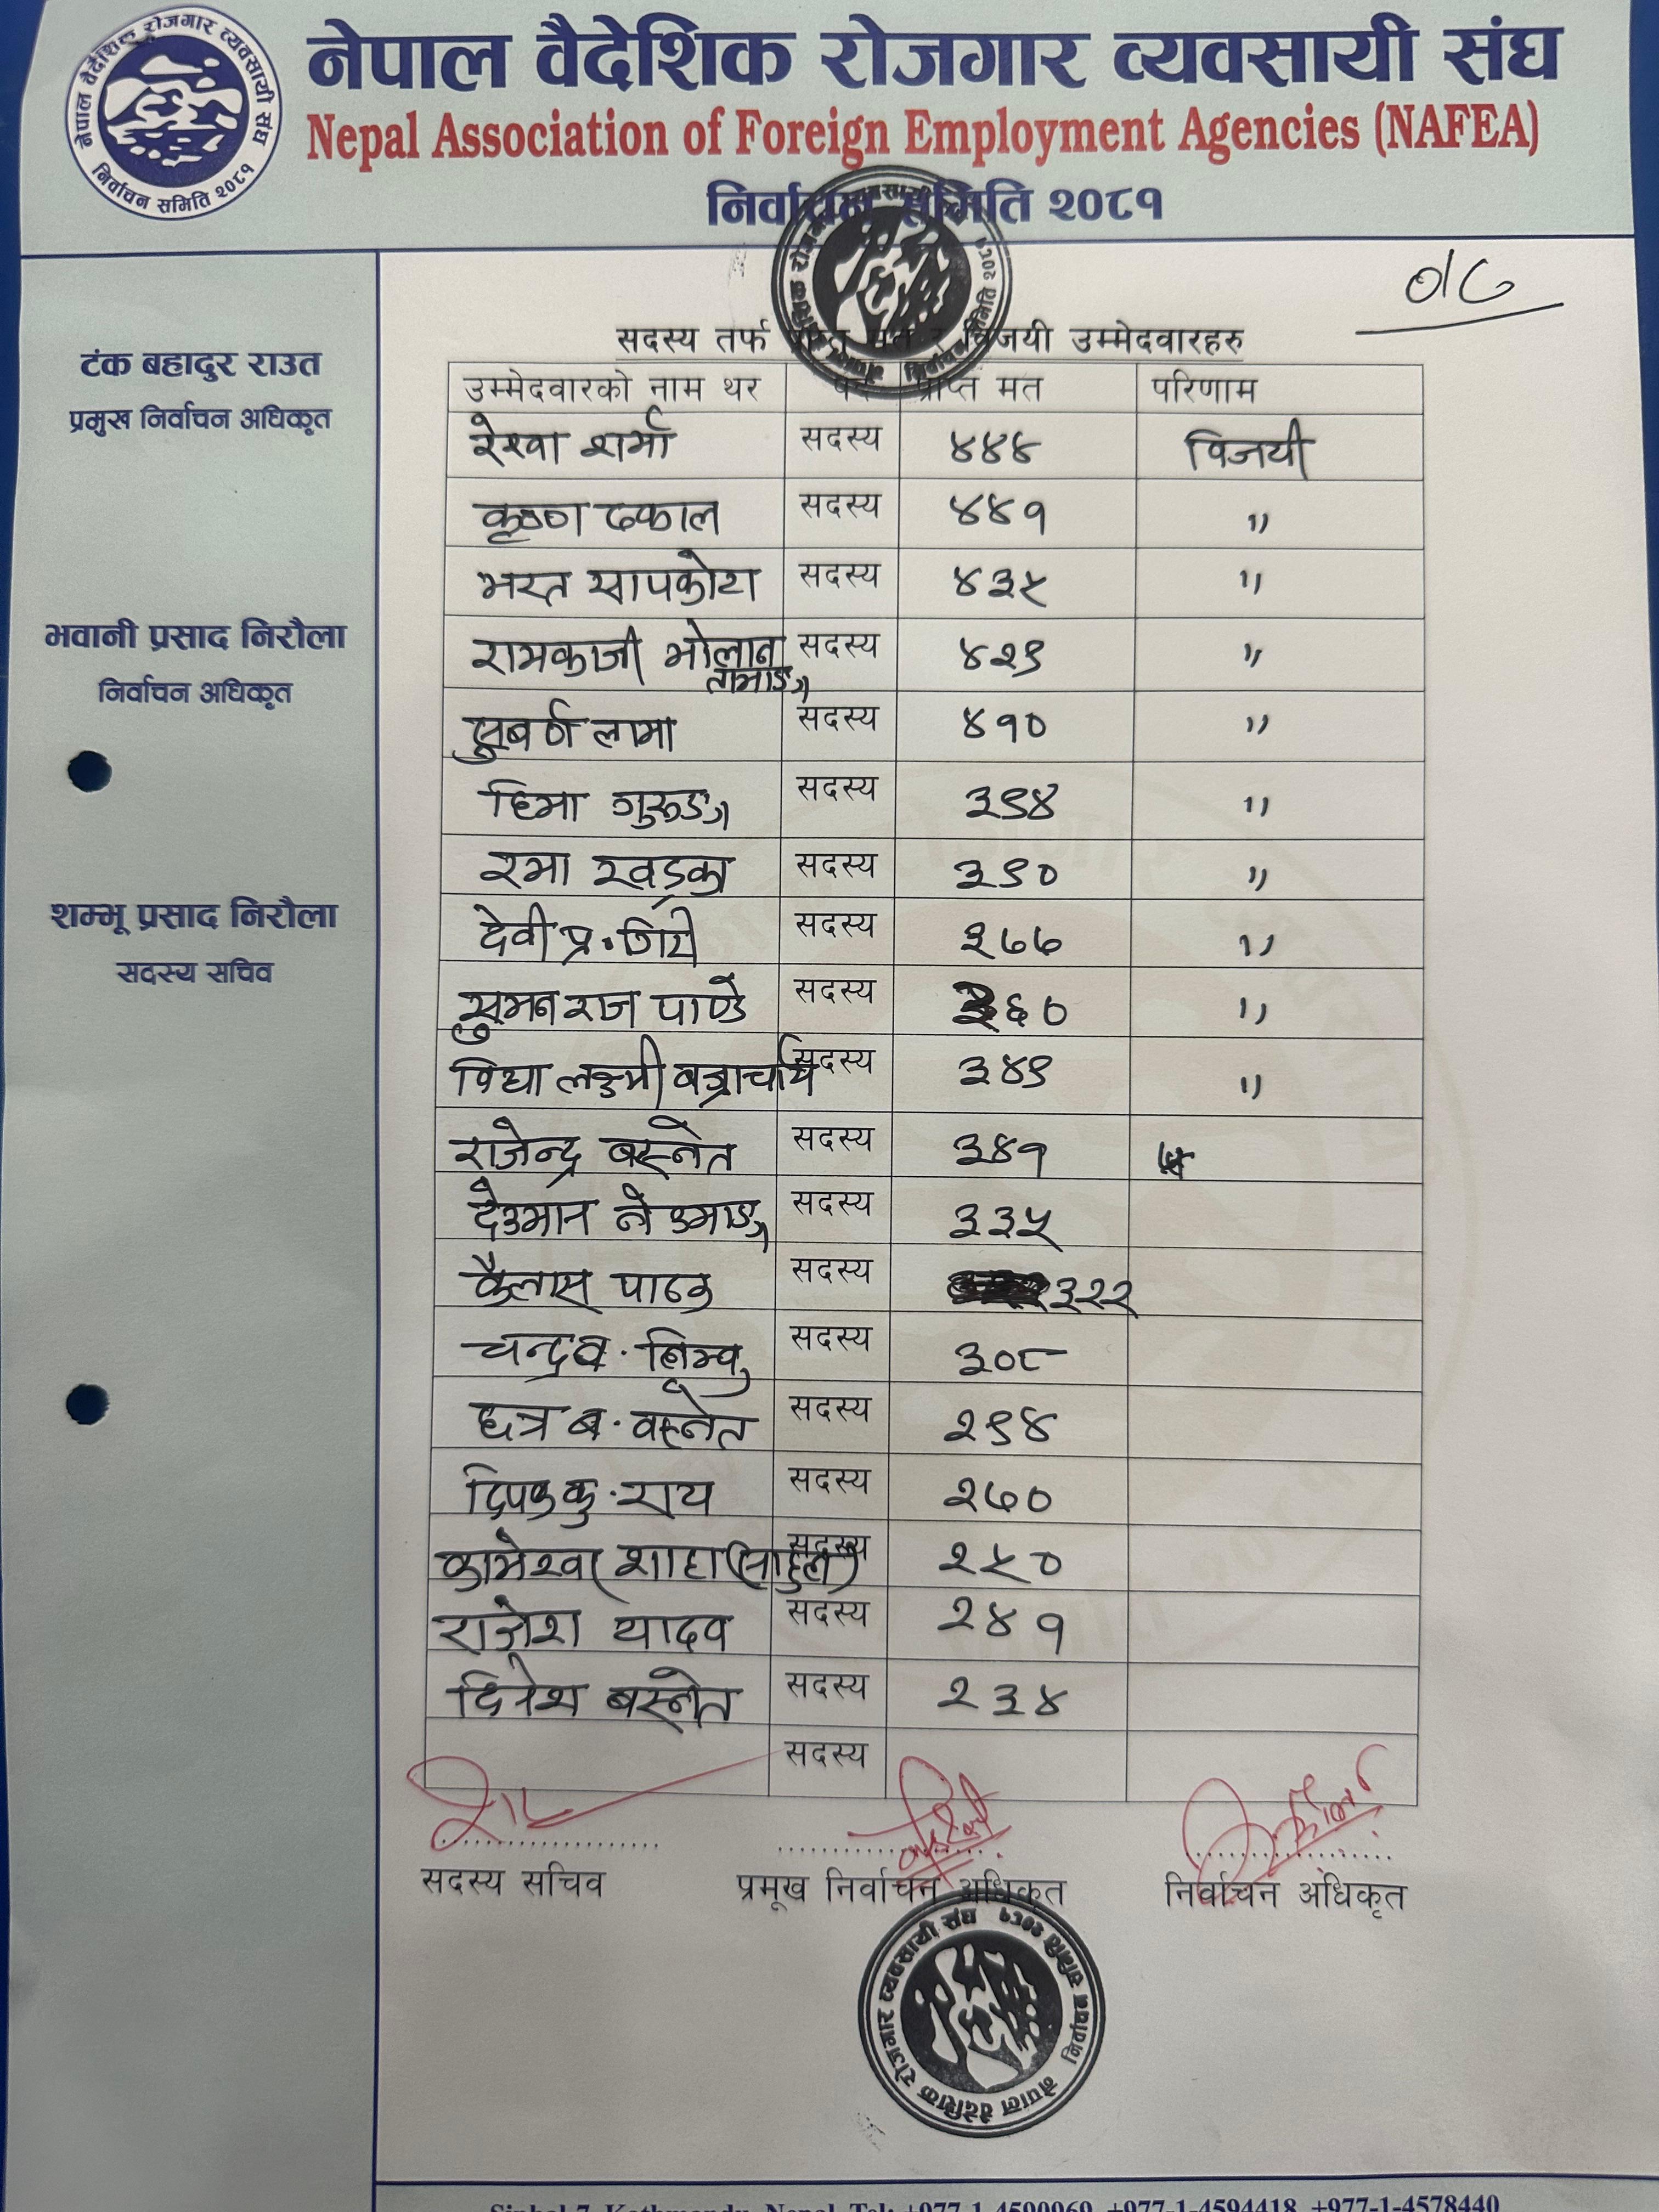 नेपाल वैदेशिक रोजगार व्यवसायी संघ
निर्वाचन समिति २०८१
नेपाल वैदेशिक रोजगार व्यवसायी संघ
Nepal Association of Foreign Employment Agencies (NAFEA)
निर्वाचन समिति २०८१
टंक बहादुर राउत
प्रमुख निर्वाचन अधिकृत
भवानी प्रसाद निरौला
निर्वाचन अधिकृत
शम्भू प्रसाद निरौला
सदस्य सचिव
सदस्य तर्फ प्राप्त मत र विजयी उम्मेदवारहरु
उम्मेदवारको नाम थर पद प्राप्त मत परिणाम
रेखा शर्मा सदस्य ४४४ विजयी
कृष्ण ढकाल सदस्य ४४१ "
भरत सापकोटा सदस्य ४३५ "
रामकाजी भोलान तामाङ्ग सदस्य ४२९ "
सुबर्ण लामा सदस्य ४१० "
हिमा गुरुङ्ग सदस्य ३९४ "
रमा खड्का सदस्य ३९० "
देवी प्र. गिरी सदस्य ३७७ "
सुमन राज पाण्डे सदस्य ३६० "
विद्या लक्ष्मी बज्राचार्य सदस्य ३४९ "
राजेन्द्र बस्नेत सदस्य ३४१
देउमान सदस्य ३३५
कैलास पाठक सदस्य ३२२
चन्द्र ब. लिम्बु सदस्य ३०८
छत्र ब. वस्नेत सदस्य २९४
दिपक कु. राय सदस्य २७०
कामेश्वर शाहा सदस्य २५०
राजेश यादव सदस्य २४१
दिनेश बस्नेत सदस्य २३४
सदस्य
सदस्य सचिव प्रमूख निर्वाचन अधिकृत निर्वाचन अधिकृत
नेपाल वैदेशिक रोजगार व्यवसायी संघ
निर्वाचन समिति २०८१
Sinhal-7, Kathmandu, Nepal, Tel: +977-1-4590069, +977-1-4594418, +977-1-4578440